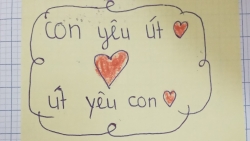 con yêu út
út yêu con